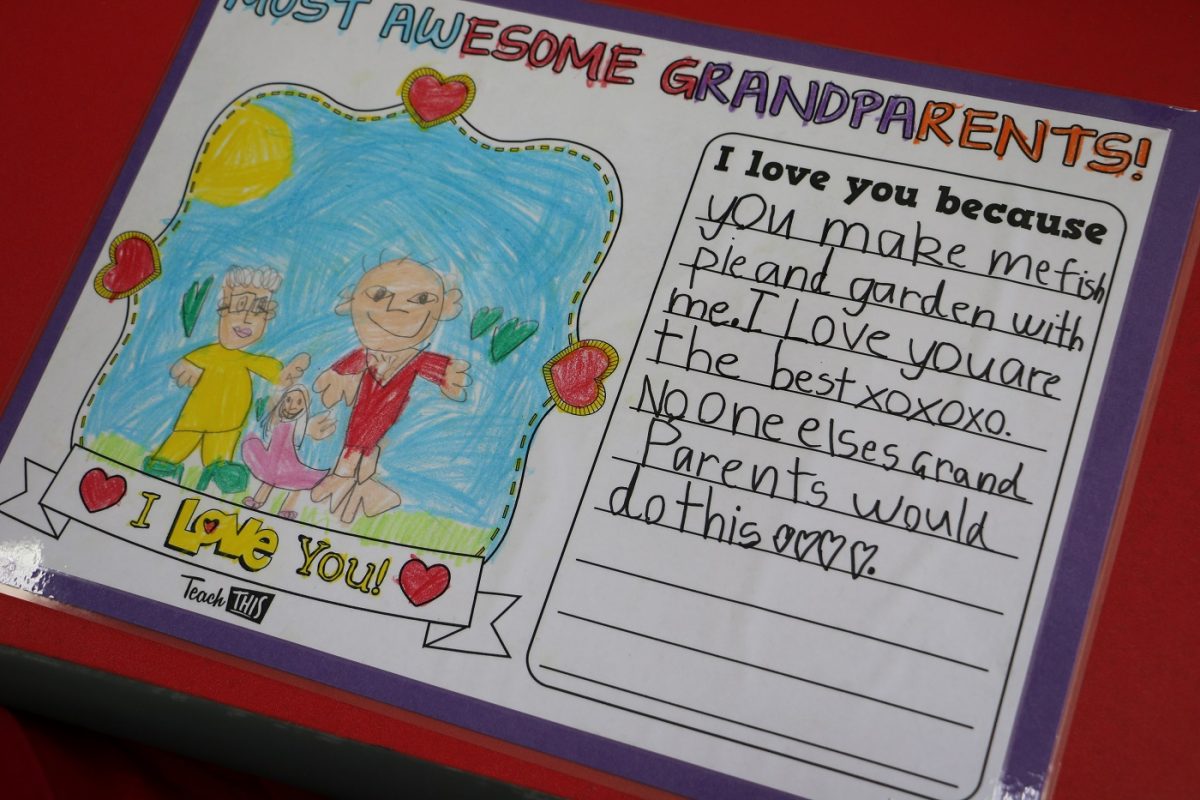 MOST AWESOME GRANDPARENTS!
I love you because
you make me fish
pie and garden with
me. I Love you are
the best xoxoxo.
No one elses Grand
Parents would
do this ♡♡♡♡.
I Love You!
Teach THIS